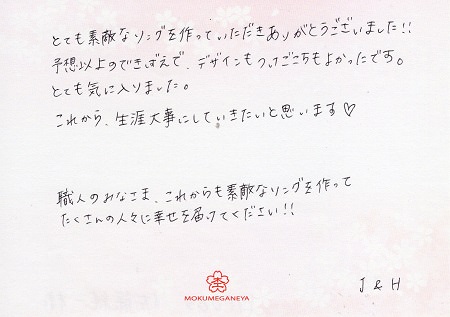 とても素敵なリングを作っていただきありがとうございました!!
予想以上のできばえで、デザインもつけごこちもよかったです。
とても気に入りました。
これから、生涯大事にしていきたいと思います♡
職人のみなさま、これからも素敵なリングを作って
たくさんの人々に幸せを届けてください!!
J & H
MOKUMEGANEYA